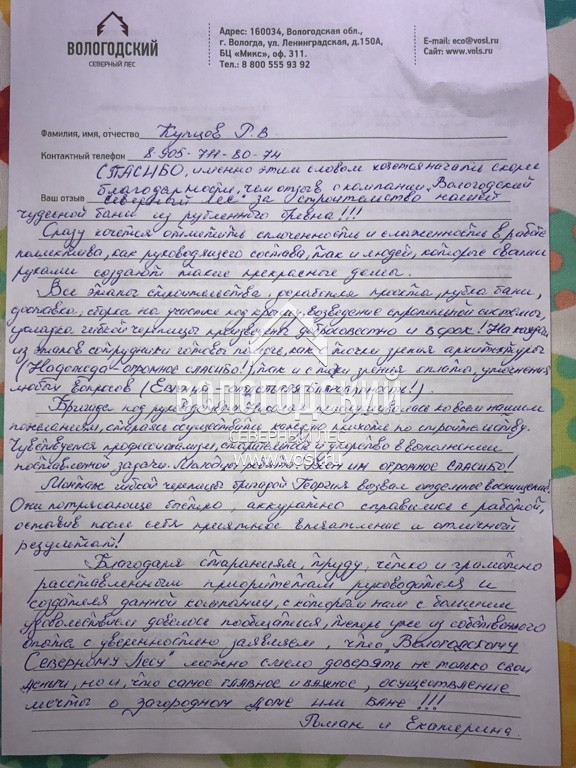 ВОЛОГОДСКИЙ
СЕВЕРНЫЙ ЛЕС
Адрес: 160034, Вологодская обл.,
г. Вологда, ул. Ленинградская, д.150А,
БЦ «Микс», оф. 311.
Тел.: 8 800 555 93 92
E-mail: eco@vosl.ru
Сайт: www.vols.ru
Фамилия, имя, отчество Купцов Р.В.
Контактный телефон 8 905-711-80-74
СПАСИБО, именно этим словом хочется начать скорее
благодарность, чем отзыв о компании „Вологодский
Ваш отзыв Северный Лес" за строительство нашей
чудесной бани из рубленного бревна!!!
Сразу хочется отметить сплоченность и слаженность в работе
коллектива, как руководящего состава, так и людей, которые своими
руками создают такие прекрасные дома.
Все этапы строительства, разработка проекта, рубка бани,
доставка, сборка на участке под крышу, возведение стропильной системы,
укладка гибкой черепицы произведены добросовестно и в срок! На каждом
из этапов сотрудники готовы помочь, как с точки зрения архитектуры
(Надежда - огромное спасибо!), так и с точки зрения оплаты, уточнения
любых вопросов (
ВОЛОГОДСКИЙ
СЕВЕРНЫЙ ЛЕС
www.vosl.ru
Бригада под руководством прислушивалась ко всем нашим
пожеланиям, стараясь осуществить каждую прихоть по строительству.
Чувствуется профессионализм, старательность и упорство в выполнении
поставленной задачи. Молодцы ребята! Всем им огромное спасибо!
Монтаж гибкой черепицы бригадой Георгия вызвал отдельное восхищение.
Они потрясающе быстро, аккуратно справились с работой,
оставив после себя приятное впечатление и отличный
результат!
Благодаря стараниям, труду, четко и грамотно
расставленным приоритетам руководителя и
создателя данной компании, с которым нам с большим
удовольствием довелось пообщаться, теперь уже из собственного
опыта с уверенностью заявляем, что „Вологодскому
Северному Лесу" можно смело доверять не только свои
деньги, но и, что самое главное и важное, осуществление
мечты о загородном доме или бане!!!
Роман и Екатерина.